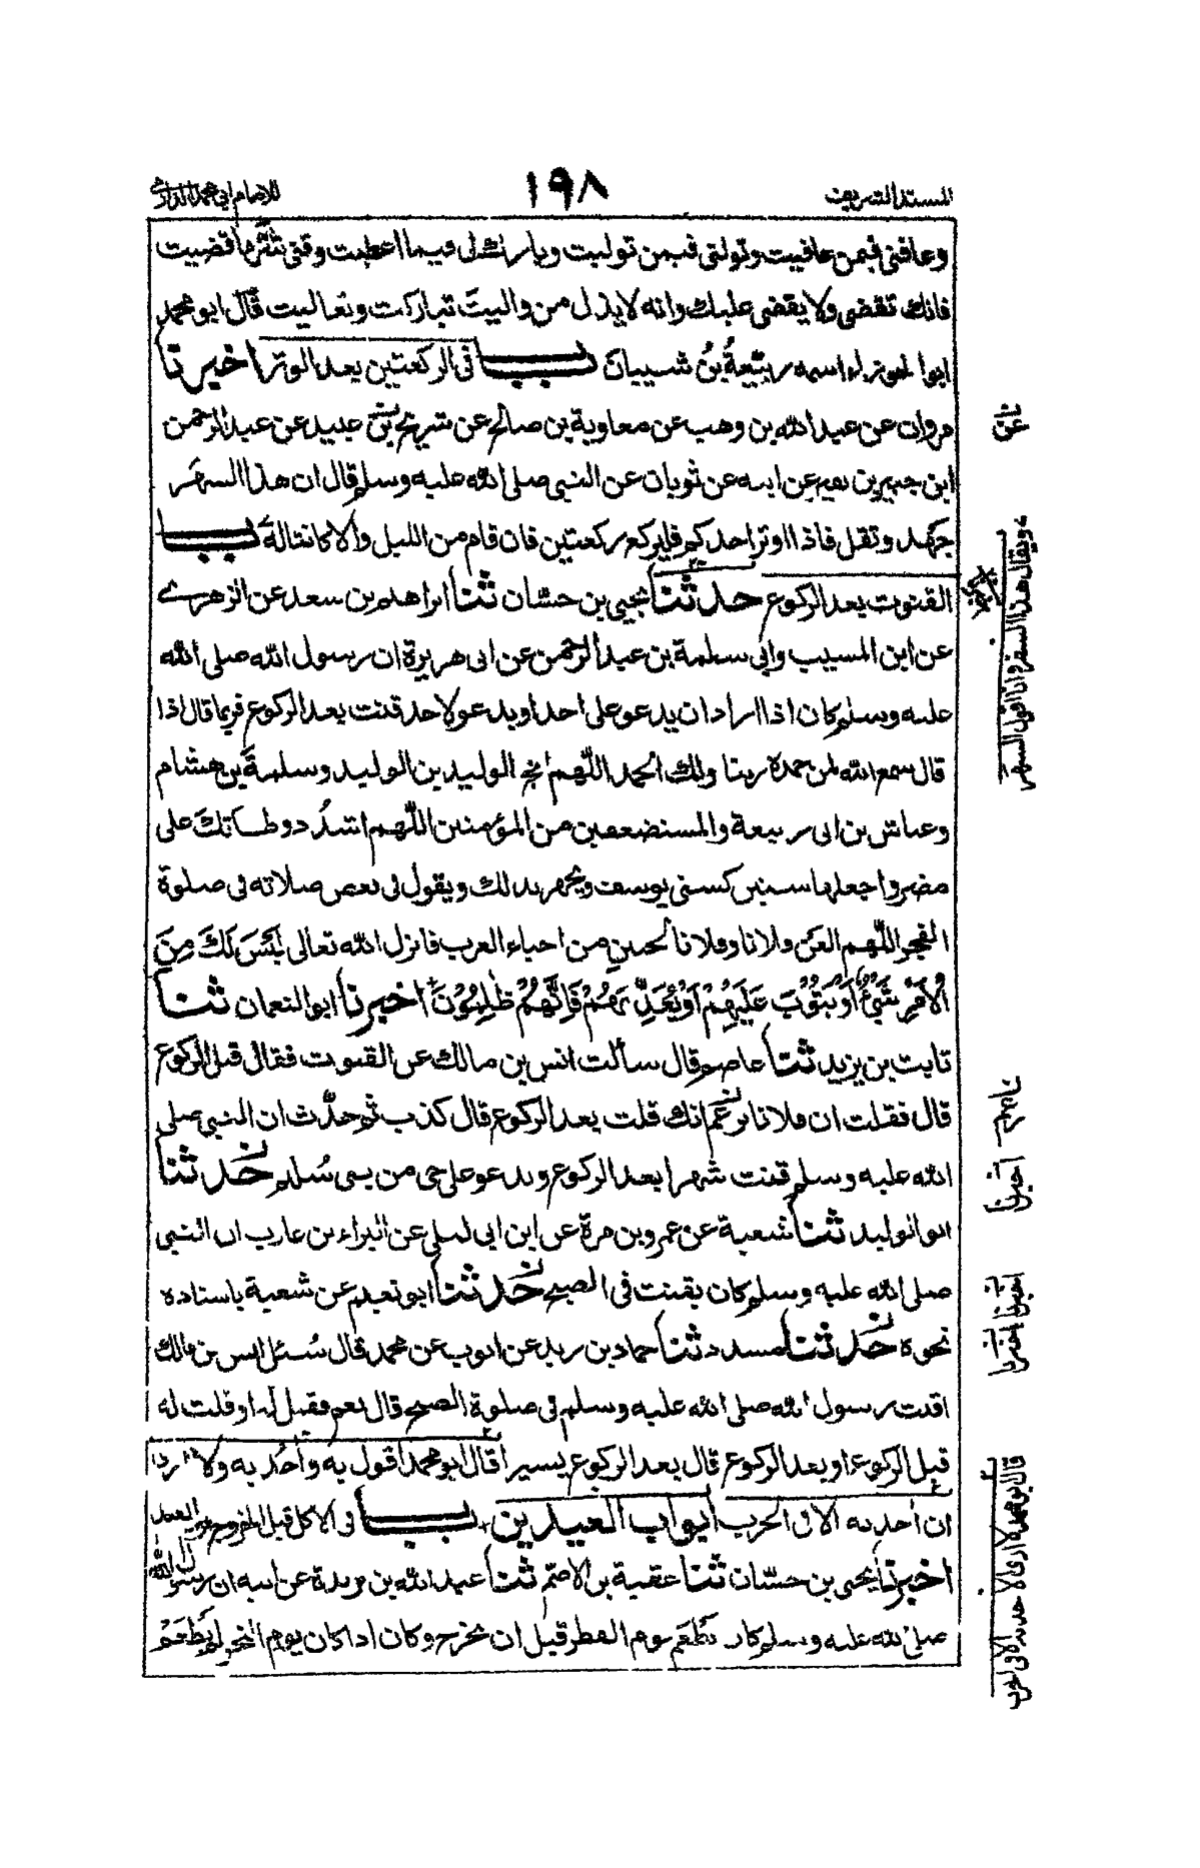 المسند الشريف
١٩٨
للامام ابي محمد الدارمي
وعافني فيمن عافيت وتولني فيمن توليت وبارك لي فيما اعطيت وقني شر ما قضيت
فانك تقضي ولا يقضى عليك وانه لا يذل من واليت تباركت وتعاليت قال ابو محمد
ابوالحوراء اسمه ربيعة بن شيبان باب في الركعتين بعد الوتر اخبرنا
مروان عن عبد الله بن وهب عن معاوية بن صالح عن شريح بن عبيد عن عبد الرحمن
ابن جبير بن نفير عن ابيه عن ثوبان عن النبي صلى الله عليه وسلم قال ان هذا السهر
جهد وثقل فاذا اوتر احدكم فليركع ركعتين فان قام من الليل والا كانتا له باب
القنوت بعد الركوع حدثنا يحيى بن حسان ثنا ابراهيم بن سعد عن الزهري
عن ابن المسيب وابي سلمة بن عبد الرحمن عن ابي هريرة ان رسول الله صلى الله
عليه وسلم كان اذا اراد ان يدعو على احد او يدعو لاحد قنت بعد الركوع فربما قال اذا
قال سمع الله لمن حمده ربنا ولك الحمد اللهم انج الوليد بن الوليد وسلمة بن هشام
وعياش بن ابي ربيعة والمستضعفين من المؤمنين اللهم اشدد وطأتك على
مضر واجعلها سنين كسني يوسف ويجهر بذلك ويقول في بعض صلاته في صلوة
الفجر اللهم العن فلانا وفلانا لحيين من احياء العرب فانزل الله تعالى لَيْسَ لَكَ مِنَ
الْاَمْرِ شَيْءٌ اَوْ يَتُوْبَ عَلَيْهِمْ اَوْ يُعَذِّبَهُمْ فَاِنَّهُمْ ظٰلِمُوْنَ اخبرنا ابو النعمان ثنا
ثابت بن يزيد ثنا عاصم قال سألت انس بن مالك عن القنوت فقال قبل الركوع
قال فقلت ان فلانا زعم انك قلت بعد الركوع قال كذب ثم حدّث ان النبي صلى
الله عليه وسلم قنت شهرا بعد الركوع ويدعو على حي من بني سُليم حدثنا
ابو الوليد ثنا شعبة عن عمرو بن مرة عن ابن ابي ليلى عن البراء بن عازب ان النبي
صلى الله عليه وسلم كان يقنت في الصبح حدثنا ابو نعيم عن شعبة باسناده
نحوه حدثنا مسدد ثنا حماد بن زيد عن ايوب عن محمد قال سُئل انس بن مالك
اقنت رسول الله صلى الله عليه وسلم في صلوة الصبح قال نعم فقيل له او قلت له
قبل الركوع او بعد الركوع قال بعد الركوع يسيرا قال ابو محمد اقول به واٰخُذ به ولا ارى
ان اٰخذ به الا في الحرب ابواب العيدين باب في الاكل قبل الخروج يوم العيد
اخبرنا يحيى بن حسّان ثنا عقبة بن الاصمّ ثنا عبد الله بن بريدة عن ابيه ان رسول الله
صلى الله عليه وسلم كان يطعم يوم الفطر قبل ان يخرج وكان اذا كان يوم النحر لم يَطْعَمْ
ويقال هذا السفر وانا اقول السهر
اخبرنا
اخبرنا اخبرنا
قال ابو محمد لا ارى الاخذ به الا في الحرب